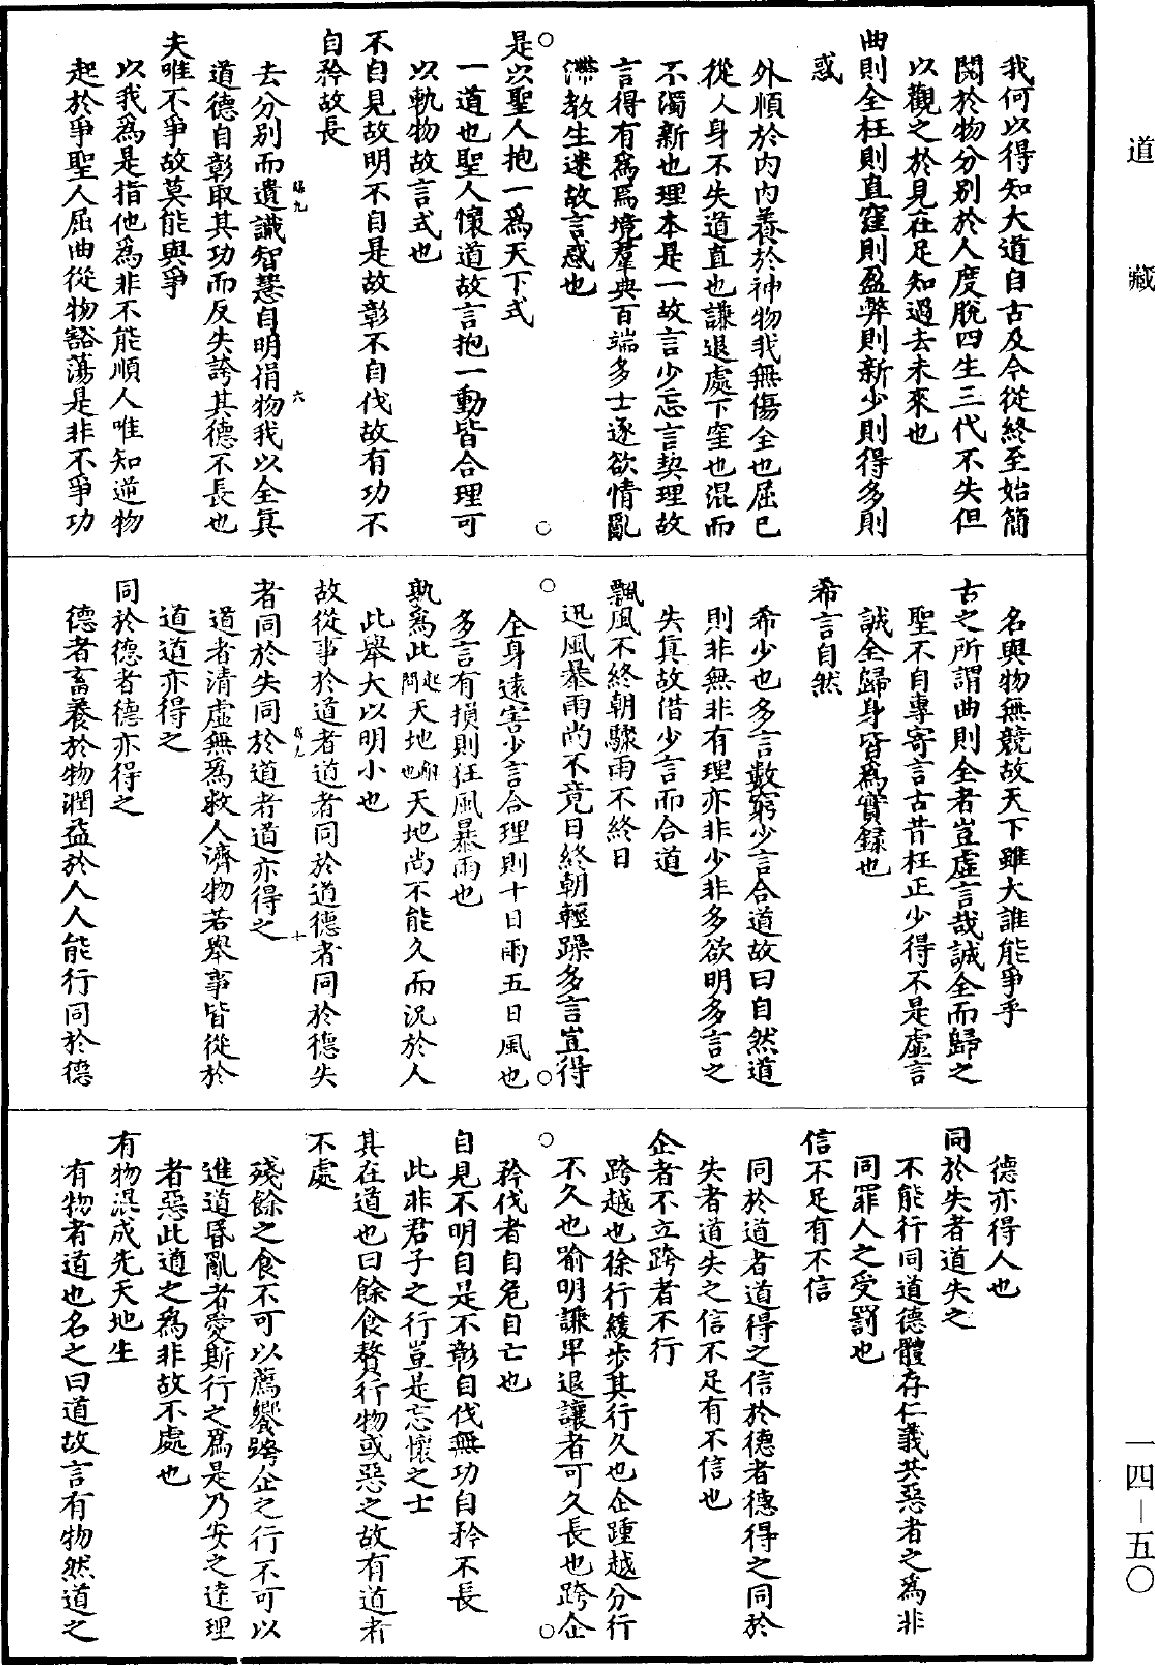 道藏
一四—五〇
我何以得知大道自古及今從終至始簡
閱於物分別於人度脫四生三代不失但
以觀之於見在足知過去未來也
曲則全枉則直窪則盈弊則新少則得多則
惑
外順於內內養於神物我無傷全也屈已
從人身不失道直也謙退處下窪也混而
不濁新也理本是一故言少忘言契理故
言得有爲爲境羣典百端多士逐欲情亂
滯教生迷故言惑也
是以聖人抱一爲天下式
一道也聖人懷道故言抱一動皆合理可
以軌物故言式也
不自見故明不自是故彰不自伐故有功不
自矜故長
去分別而遺識智慧自明捐物我以全真
道德自彰取其功而反失誇其德不長也
夫唯不爭故莫能與爭
以我爲是指他爲非不能順人唯知逆物
起於爭聖人屈曲從物豁蕩是非不爭功
名與物無競故天下雖大誰能爭乎
古之所謂曲則全者豈虛言哉誠全而歸之
聖不自專寄言古昔枉正少得不是虛言
誠全歸身皆爲實録也
希言自然
希少也多言數窮少言合道故曰自然道
則非無非有理亦非少非多欲明多言之
失真故借少言而合道
飄風不終朝驟雨不終日
迅風暴雨尚不竟日終朝輕躁多言豈得
全身遠害少言合理則十日雨五日風也
多言有損則狂風暴雨也
孰爲此起問天地也天地尚不能久而況於人
此舉大以明小也
故從事於道者道者同於道德者同於德失
者同於失同於道者道亦得之
道者清虛無爲救人濟物若舉事皆從於
道道亦得之
同於德者德亦得之
德者畜養於物潤益於人人能行同於德
德亦得人也
同於失者道失之
不能行同道德體存仁義共惡者之爲非
同罪人之受罰也
信不足有不信
同於道者道得之信於德者德得之同於
失者道失之信不足有不信也
企者不立跨者不行
跨越也徐行緩步其行久也企踵越分行
不久也喻明謙卑退讓者可久長也跨企
矜伐者自危自亡也
自見不明自是不彰自伐無功自矜不長
此非君子之行豈是忘懷之士
其在道也曰餘食贅行物或惡之故有道者
不處
殘餘之食不可以薦饗跨企之行不可以
進道昬亂者愛斯行之爲是乃安之達理
者惡此道之爲非故不處也
有物混成先天地生
有物者道也名之曰道故言有物然道之